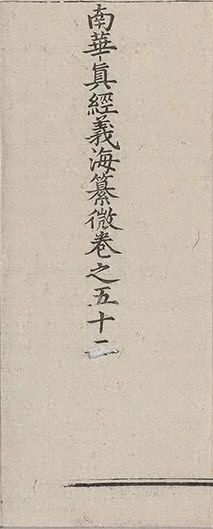 南華眞經義海纂微卷之五十二